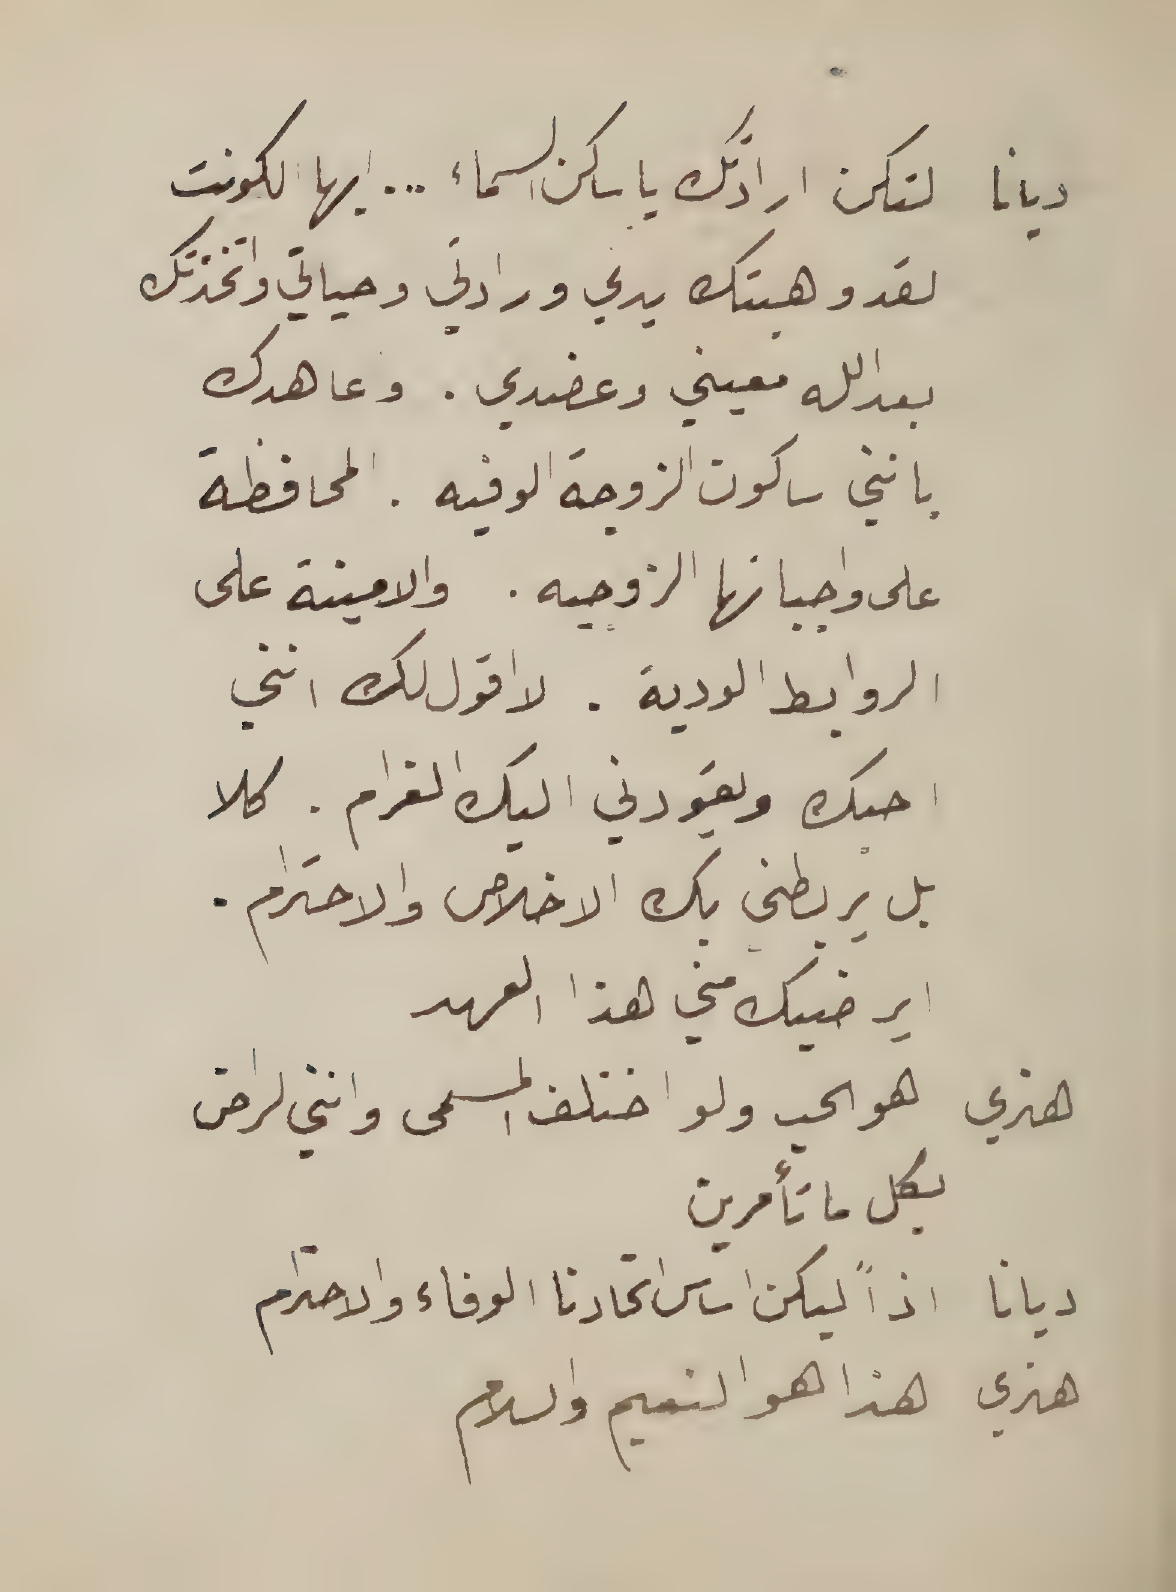 ديانا لتكن ارادتك يا ساكن السماء ... ايها الكونت
لقد وهبتك يدي ورادتي وحياتي واتخذتك
بعد الله معيني وعضدي . وعاهدك
بانني ساكون الزوجة الوفيه . المحافظة
على واجباتها الزوجيه . والامينة على
الروابط الودية . لا اقول لك انني
احبك ويقودني اليك الغرام . كلا
بل يربطني بك الاخلاص والاحترام .
ايرضيك مني هذا العهد
هنري هو الحب ولو اختلف المسمى وانني لراض
بكل ما تأمرين
ديانا اذاً ليكن اساس اتحادنا الوفاء والاحترام
هنري هذا هو النعيم والسلام